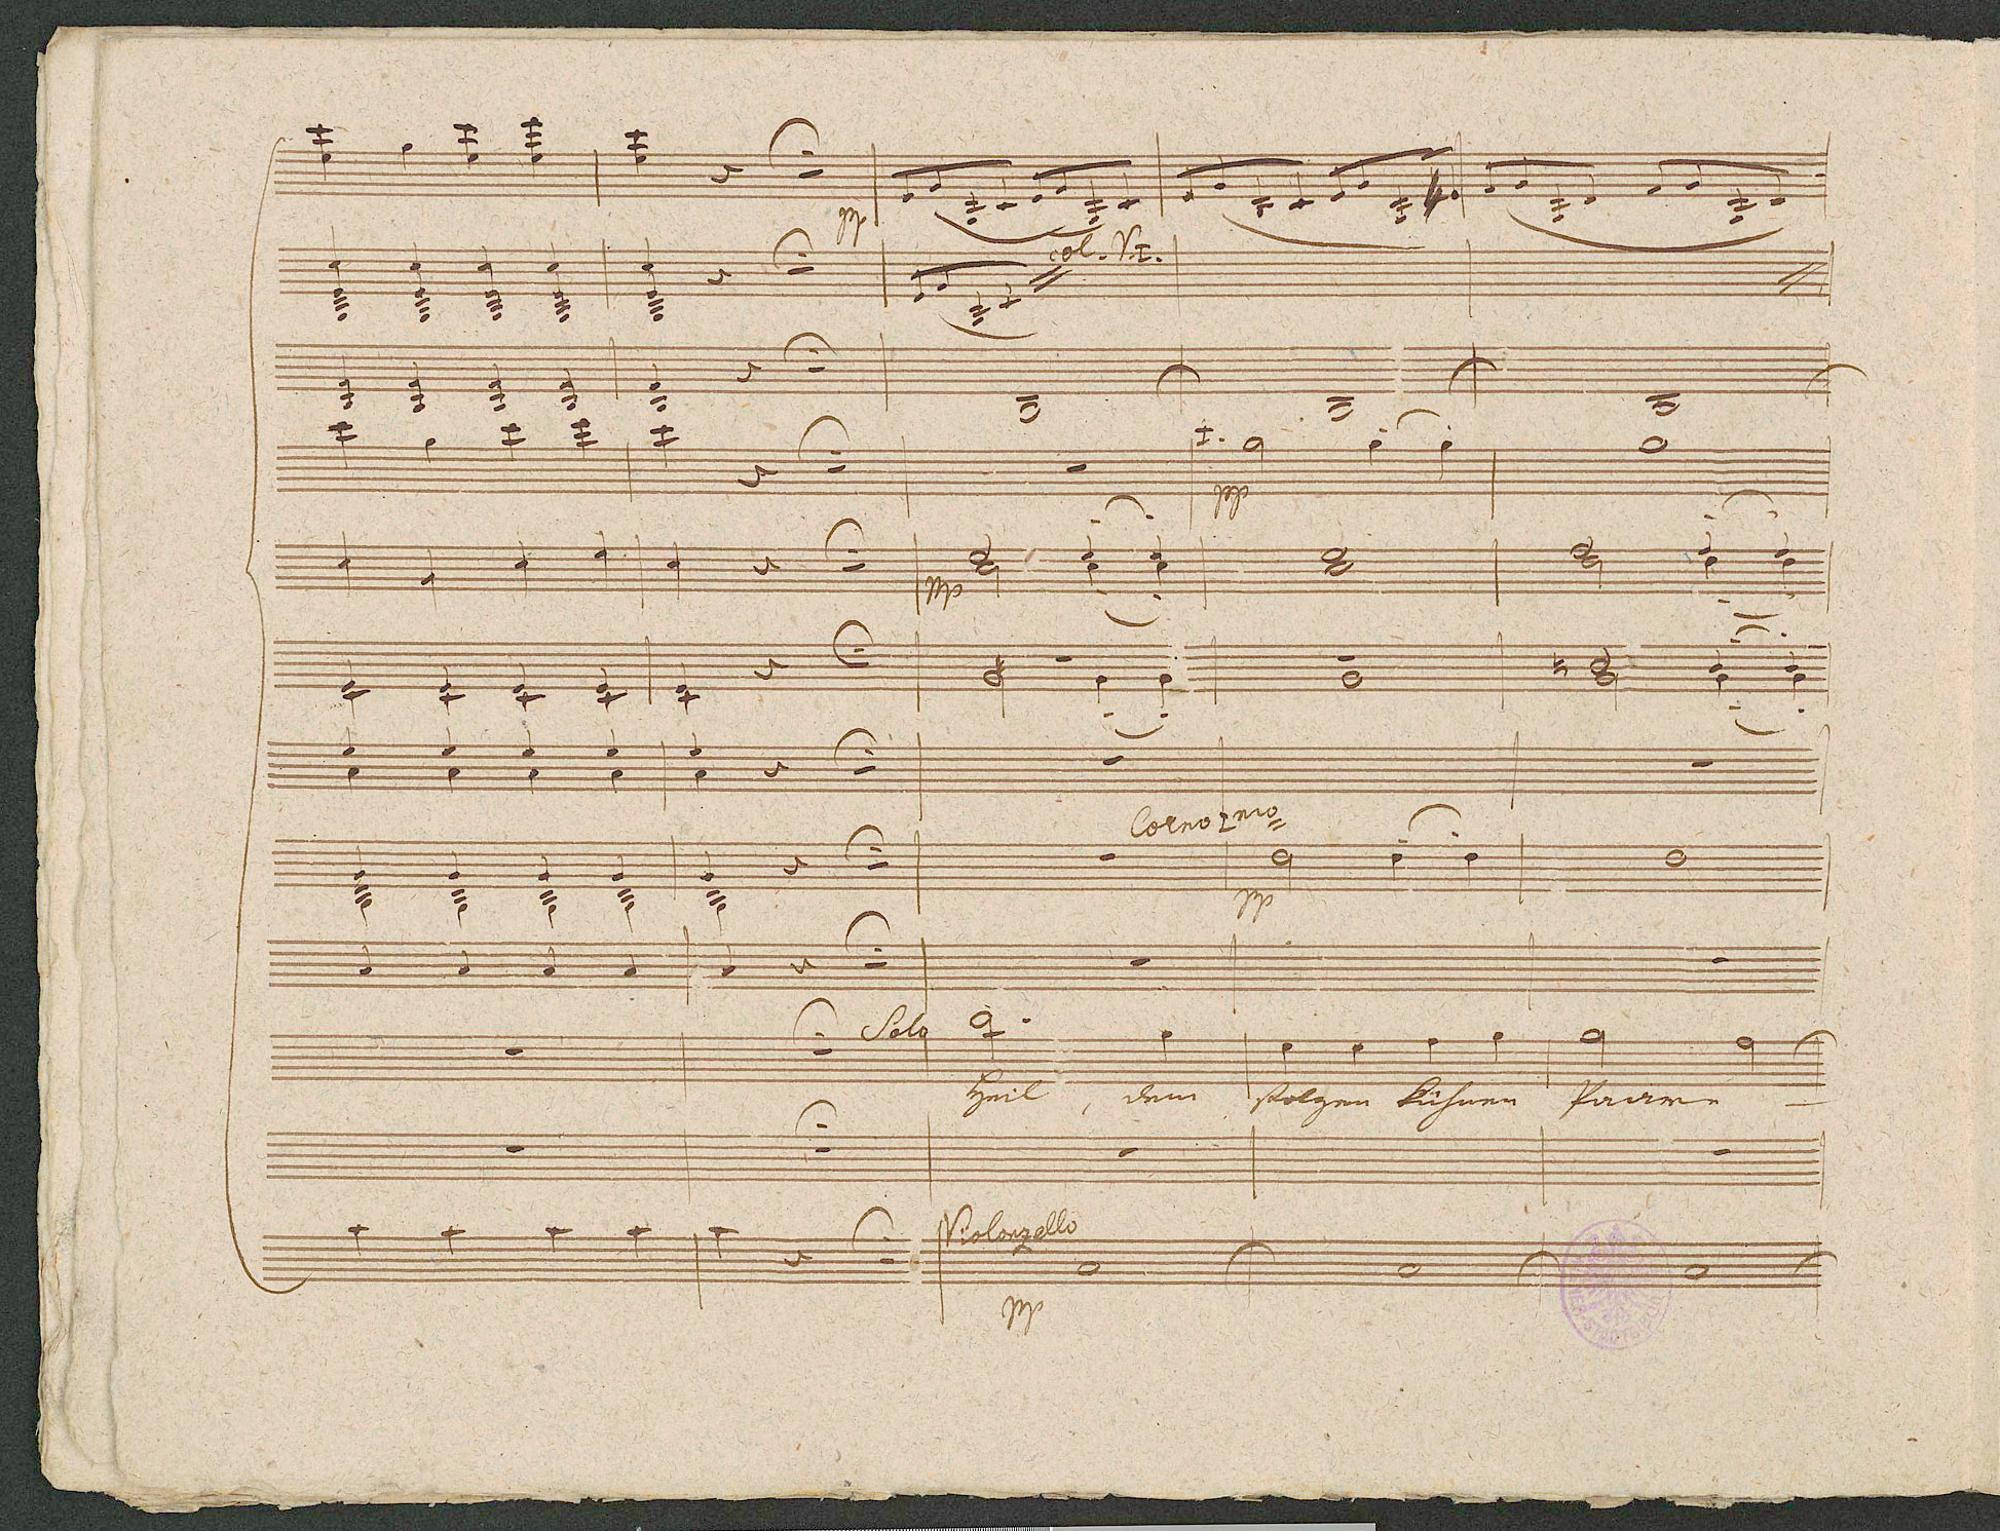 pp
col. VI.
I.
pp
pp
Corno 1mo
pp
Solo
Heil, dem stolzen kühnen Paare
Violonzello
pp